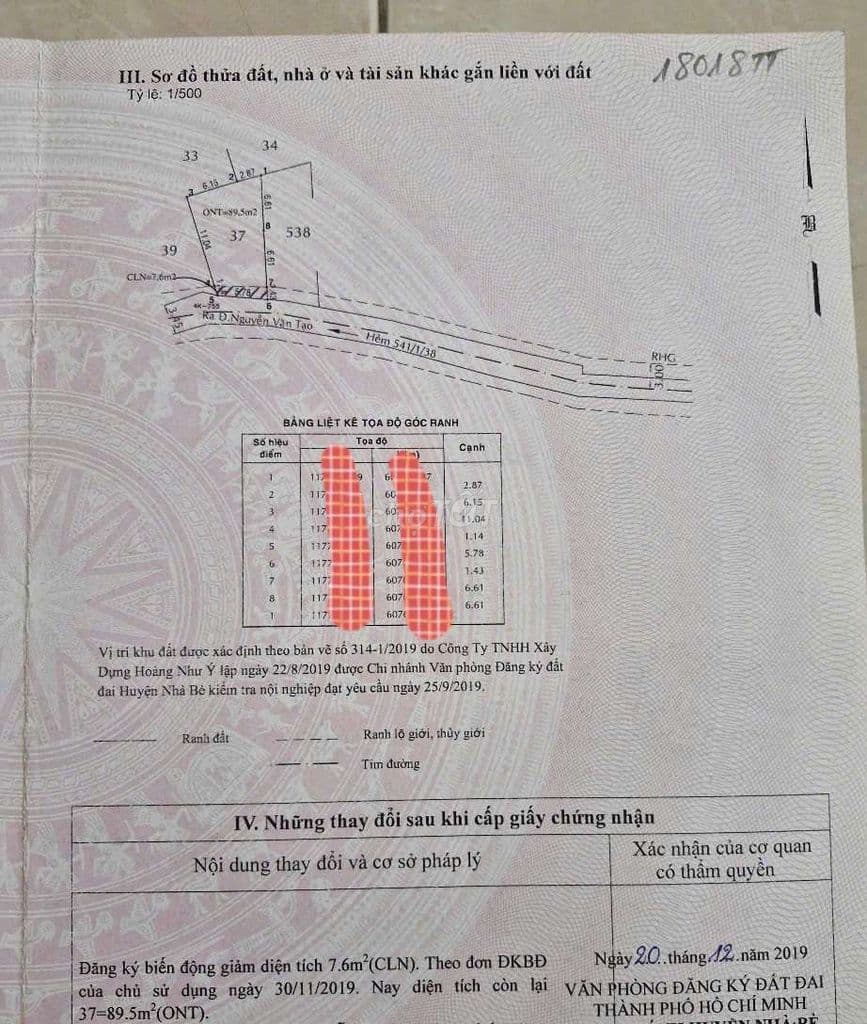 III. Sơ đồ thửa đất, nhà ở và tài sản khác gắn liền với đất
18018 TT
Tỷ lệ: 1/500
34
33
2
2.87
1
6.15
3
6.61
ONT=89,5m2
8
37
538
39
11.04
6.61
CLN=7,6m2
7
5
6
3.45
Ra Đ.Nguyễn Văn Tạo
Hẻm 541/1/38
RHG
3.00
B
BẢNG LIỆT KÊ TỌA ĐỘ GÓC RANH
Số hiệu điểm
Tọa độ
Cạnh
1
2.87
2
6.15
3
11.04
4
1.14
5
5.78
6
1.43
7
6.61
8
6.61
1
Vị trí khu đất được xác định theo bản vẽ số 314-1/2019 do Công Ty TNHH Xây
Dựng Hoàng Như Ý lập ngày 22/8/2019 được Chi nhánh Văn phòng Đăng ký đất
đai Huyện Nhà Bè kiểm tra nội nghiệp đạt yêu cầu ngày 25/9/2019.
Ranh đất
Ranh lộ giới, thủy giới
Tim đường
IV. Những thay đổi sau khi cấp giấy chứng nhận
Nội dung thay đổi và cơ sở pháp lý
Xác nhận của cơ quan
có thẩm quyền
Đăng ký biến động giảm diện tích 7.6m²(CLN). Theo đơn ĐKBĐ
của chủ sử dụng ngày 30/11/2019. Nay diện tích còn lại
37=89.5m²(ONT).
Ngày 20 tháng 12 năm 2019
VĂN PHÒNG ĐĂNG KÝ ĐẤT ĐAI
THÀNH PHỐ HỒ CHÍ MINH